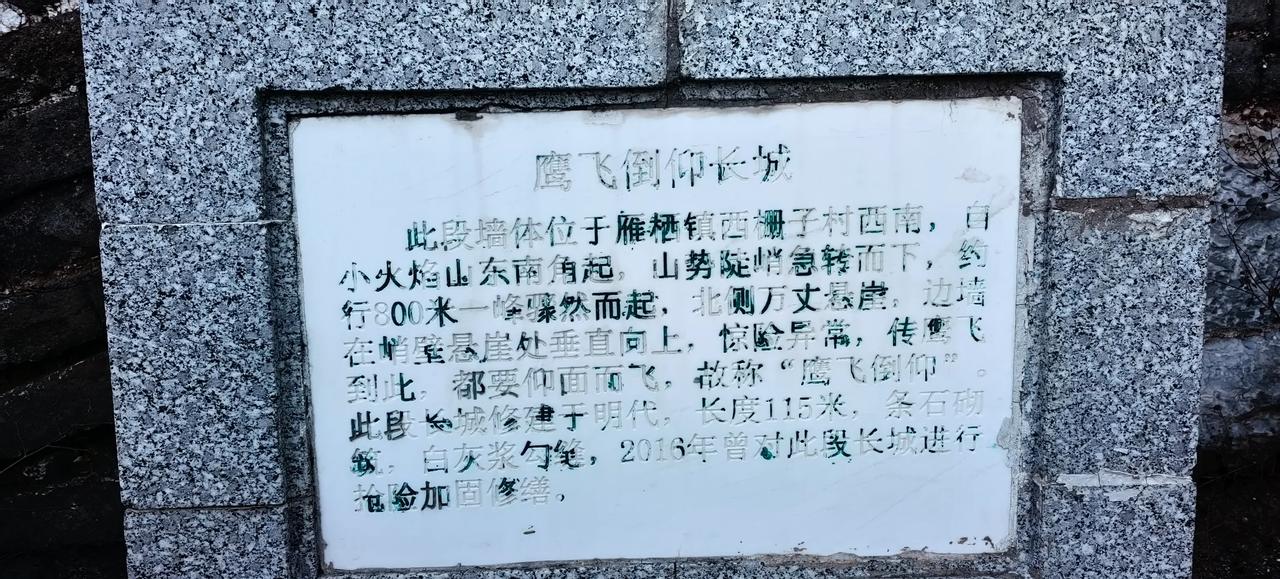 鹰飞倒仰长城
此段墙体位于雁栖镇西栅子村西南，自
小火焰山东南角起，山势陡峭急转而下，约
行800米一峰骤然而起，北侧万丈悬崖，边墙
在峭壁悬崖处垂直向上，惊险异常，传鹰飞
到此，都要仰面而飞，故称“鹰飞倒仰”。
此段长城修建于明代，长度115米，条石砌
筑，白灰浆勾缝，2016年曾对此段长城进行
抢险加固修缮。